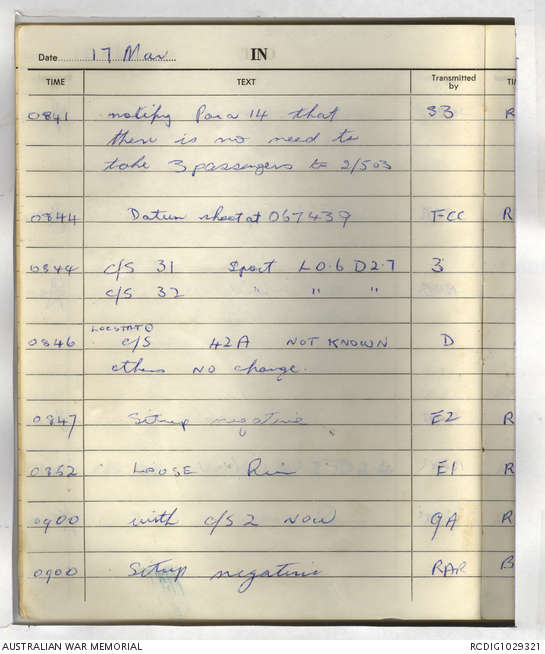 Date 17 Mar IN
TIME TEXT Transmitted by TI
0841 notify Para 14 that 83 R
there is no need to
take 3 passengers to 2/503
0844 Datum shoot at 067439 FCC R
0844 C/S 31 Sport L0.6 D2.7 3
C/S 32 " " "
LOCSTAT
0846 C/S 42A NOT KNOWN D
others NO change.
0847 Sitrep negative E2 R
0852 LOOSE E1 R
0900 with C/S 2 NOW 9A R
0900 Sitrep negative RAR B
AUSTRALIAN WAR MEMORIAL RCDIG1029321